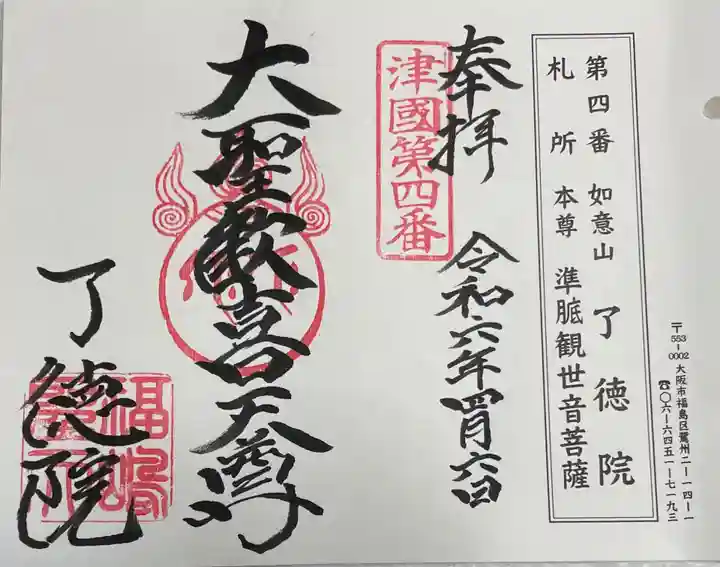 第四番 如意山 了徳院
札所 本尊 準胝観世音菩薩
〒553-0002 大阪市福島区鷺州二ー一四ー一
☎〇六ー六四五一ー七一九三
奉拝 令和六年四月六日
津國第四番
大聖歓喜天尊
了徳院